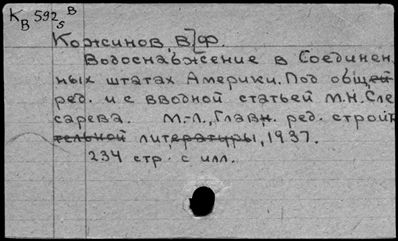 К В 592 s В
Кожинов, В]Ф.
Водоснабжение в Соединен-
ных штатах Америки. Под общей
ред. и с вводной статьей М.Н. Сле-
сарева. М.-Л., Главн. ред. строи-
тельной литературы, 1937.
234 стр. с илл.